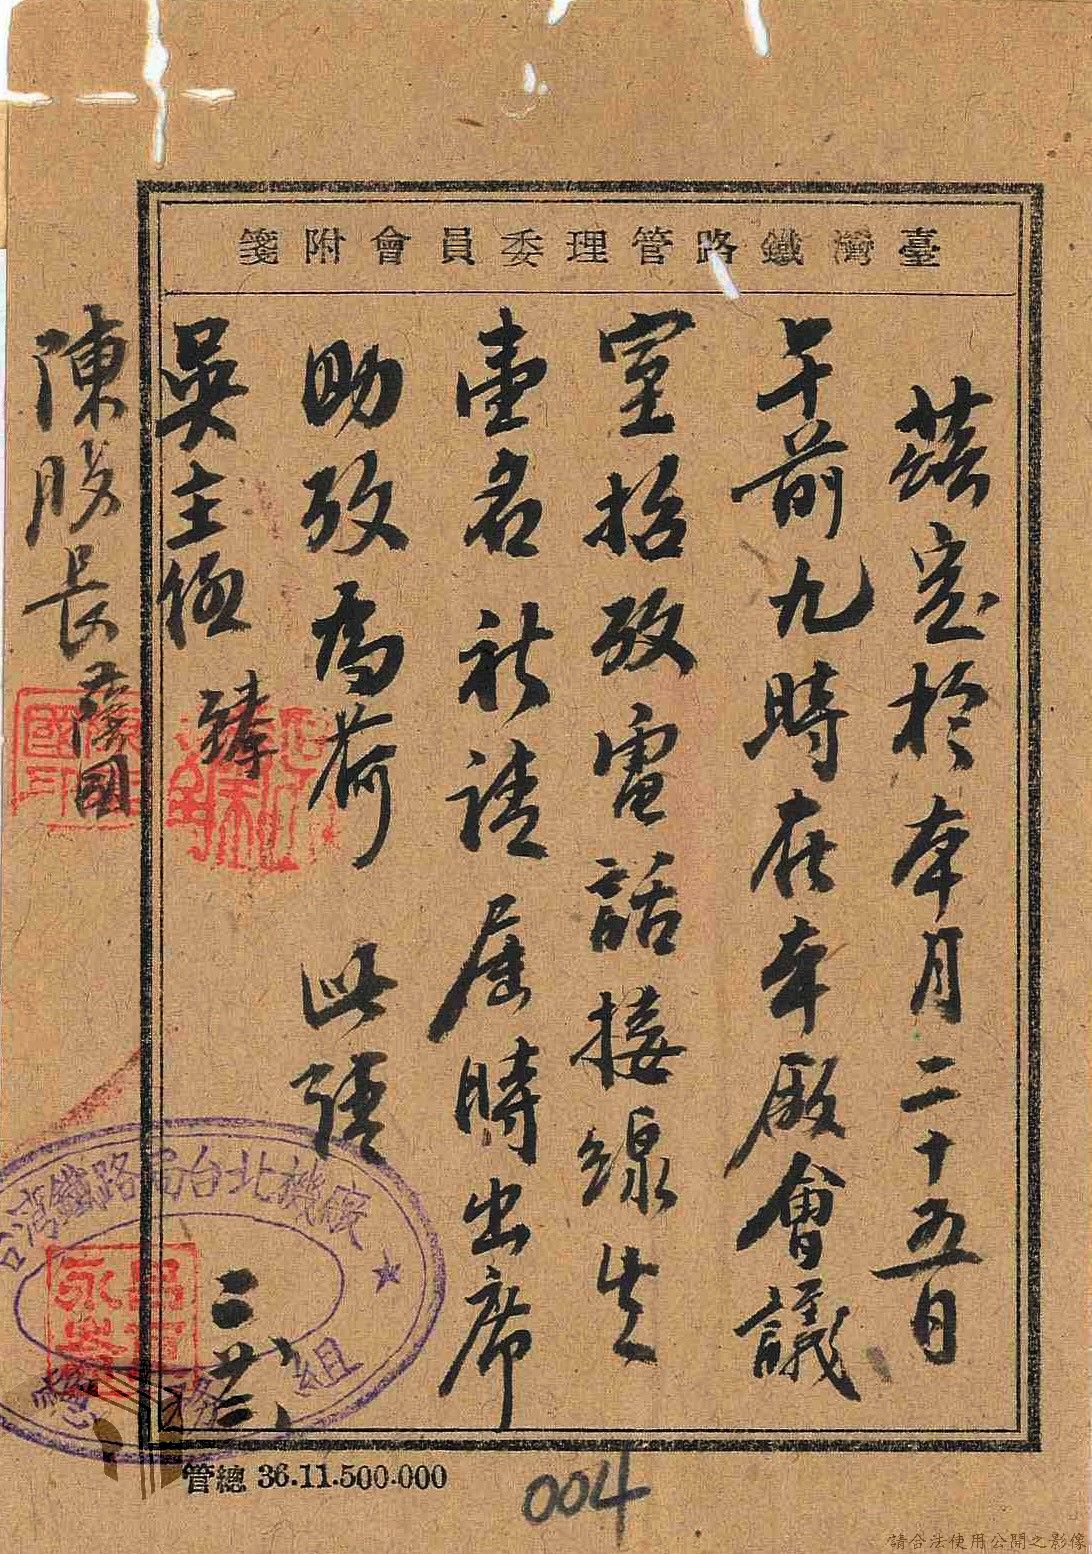 臺灣鐵路管理委員會附箋
茲定於本月二十五日
午前九時在本廠會議
室招攷電話接線生
壹名祈請届時出席
助攷為荷 此請
吳主任 臻
陳股長
二 廿三
台灣鐵路局台北機廠
總務組
管總 36.11.500.000
004
請合法使用公開之影像